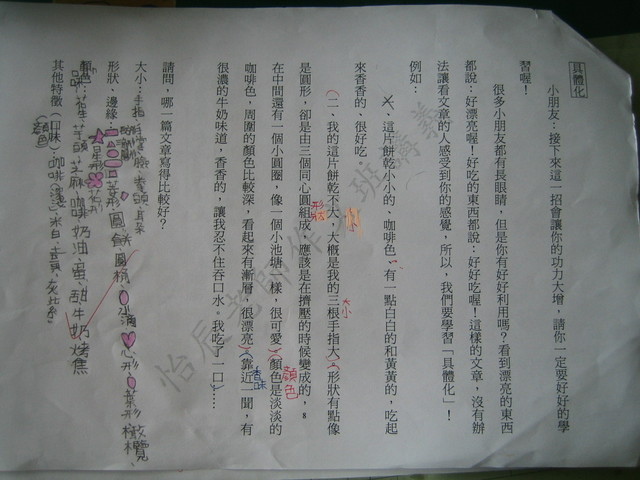 具體化
小朋友：接下來這一招會讓你的功力大增，請你一定要好好的學
習喔！
很多小朋友都有長眼睛，但是你有好好利用嗎？看到漂亮的東西
都說：好漂亮喔！好吃的東西都說：好好吃喔！這樣的文章，沒有辦
法讓看文章的人感受到你的感覺，所以，我們要學習「具體化」！
例如：
一、這片餅乾小小的、咖啡色、有一點白白的和黃黃的，吃起
來香香的、很好吃。
小
二、我的這片餅乾不大，大概是我的三根手指大，形狀有點像
大小
形狀
是圓形，卻是由三個同心圓組成，應該是在擠壓的時候變成的，
在中間還有一個小圓圈，像一個小池塘一樣，很可愛，顏色是淡淡的
顏色
咖啡色，周圍的顏色比較深，看起來有漸層，很漂亮，靠近一聞，有
香味
很濃的牛奶味道，香香的，讓我忍不住吞口水。我吃了一口……
請問，哪一篇文章寫得比較好？
大小：手指
形狀、邊緣：
圓 餅 圓 心形
顏色：
芝麻 咖啡 奶油 蛋 甜 牛奶 烤焦
其他特徵（口味）咖啡
（顏色）
怡辰老師作文班講義